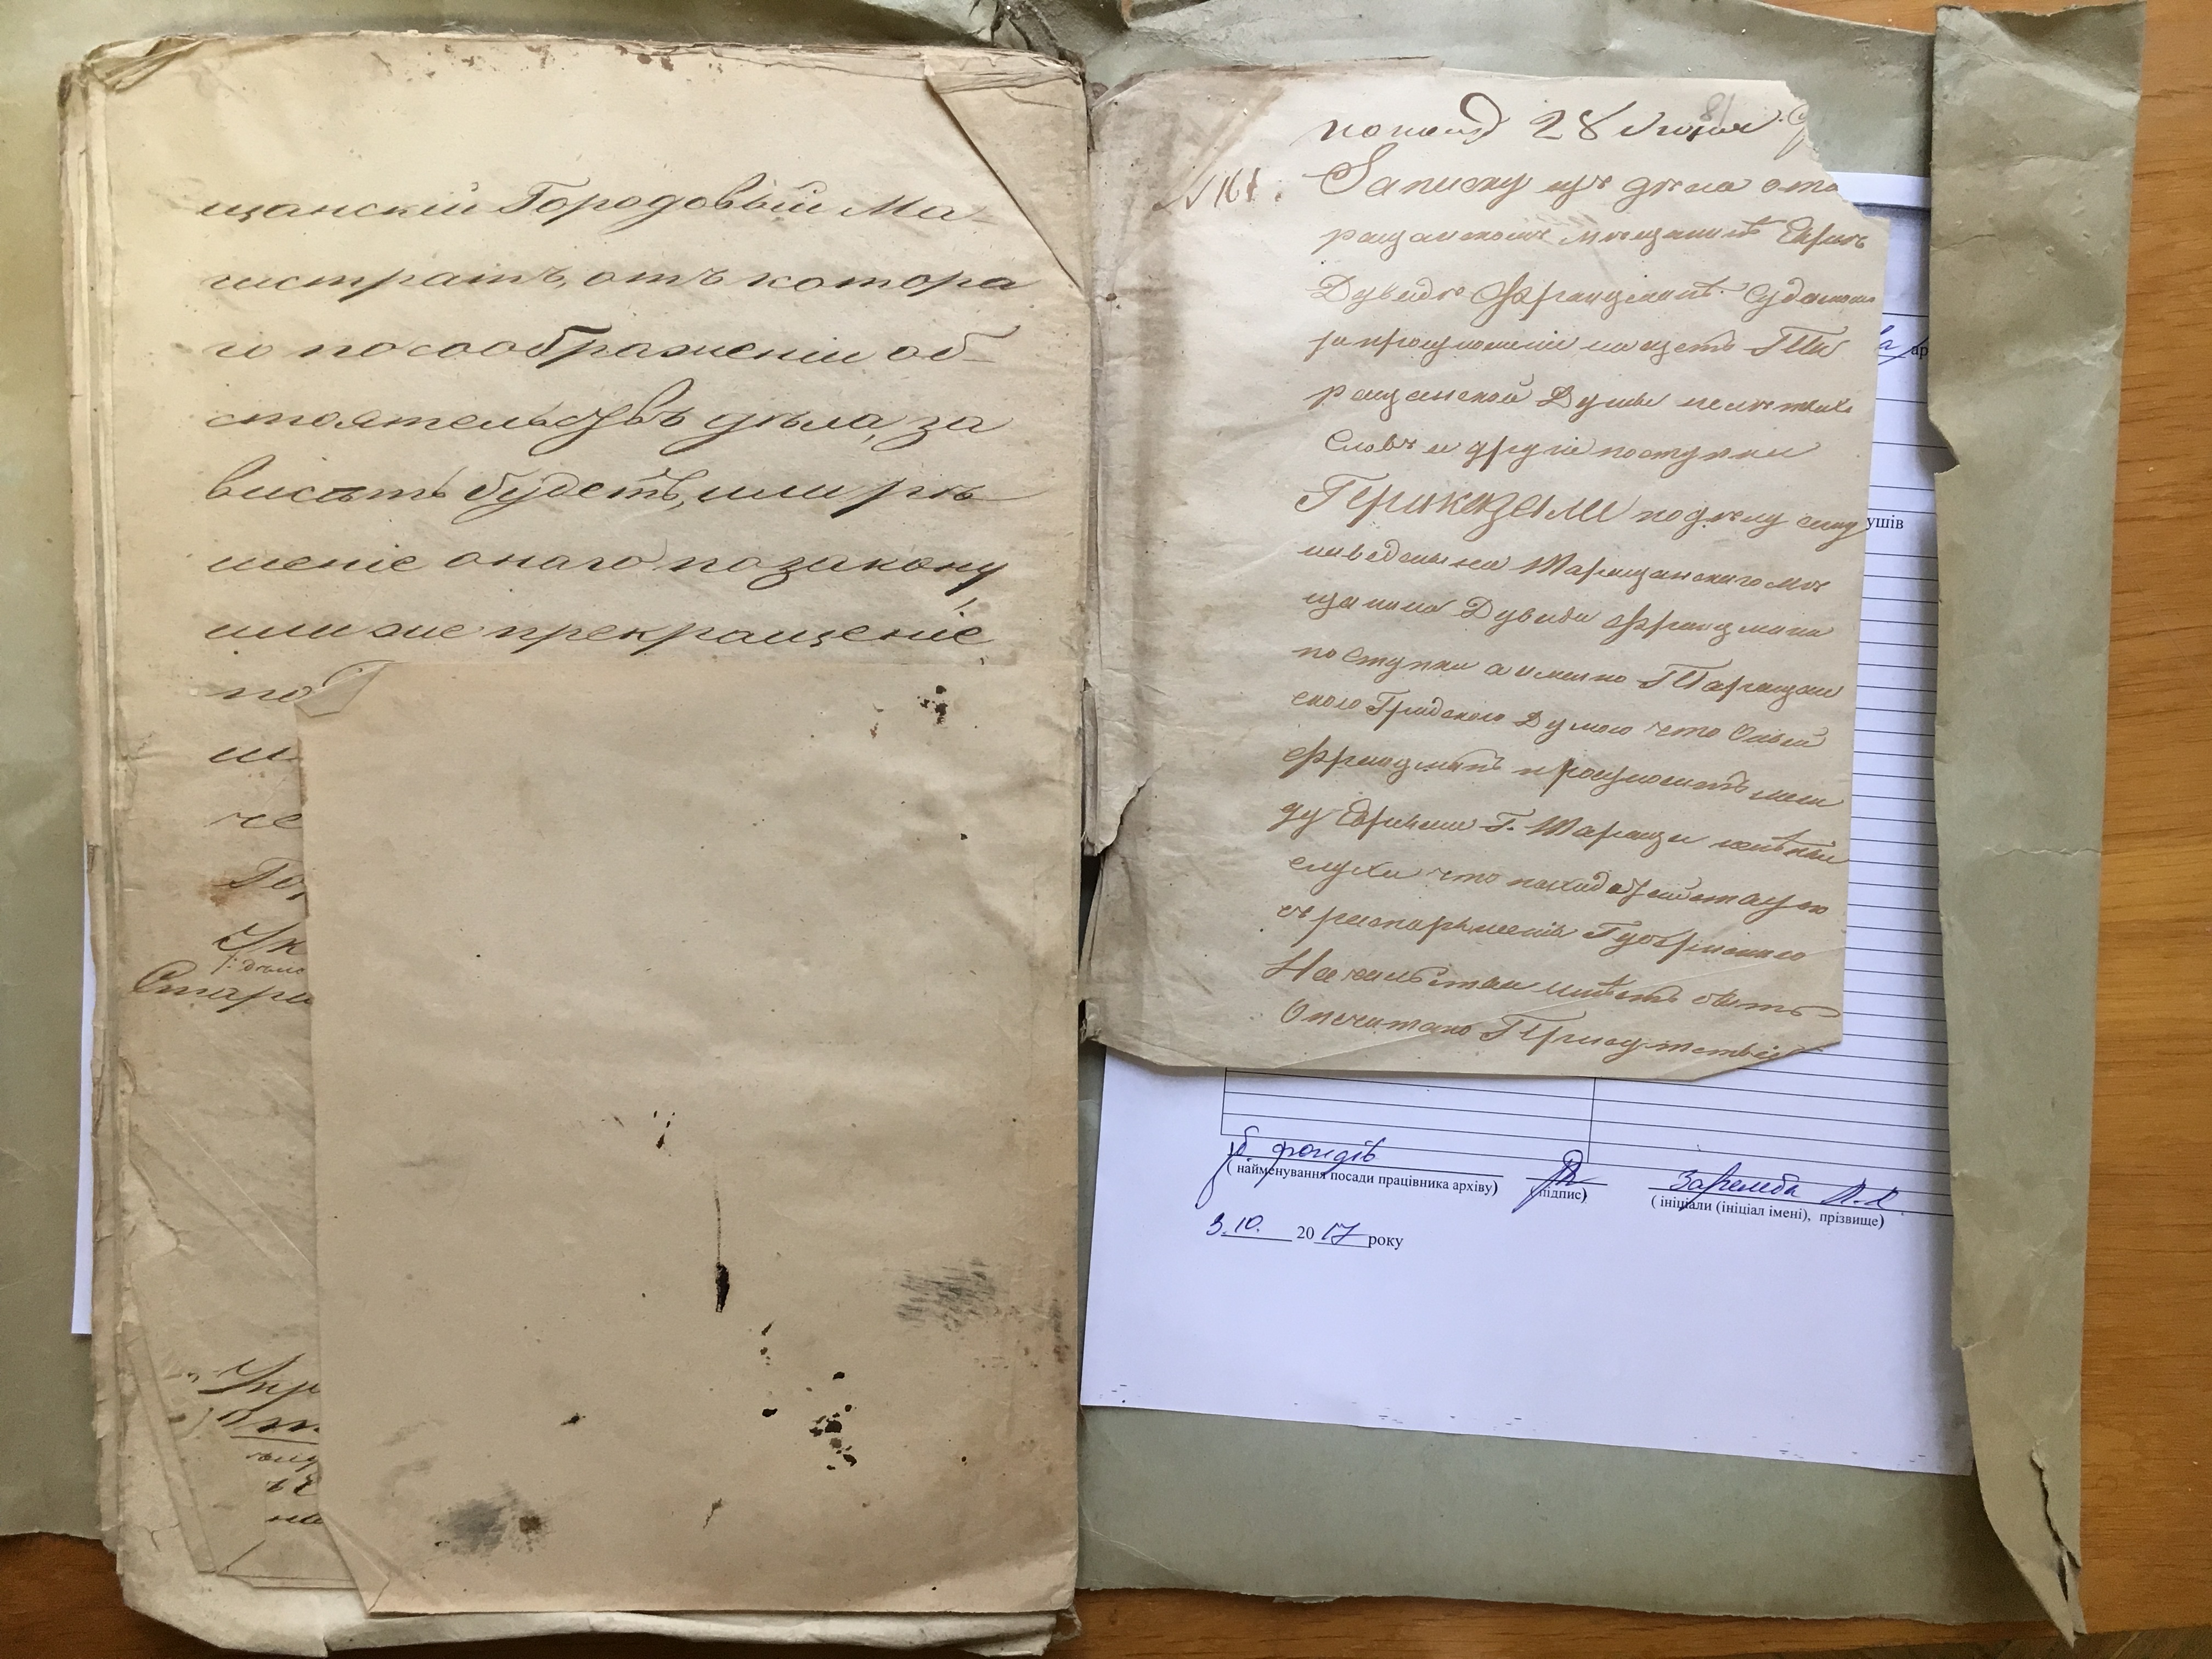 щанскій Городовый Ма-
гистратъ, отъ котора
го по соображеніи об-
стоятельствъ дѣла, за
висить будетъ, или рѣ
шеніе онаго по закону,
или же прекращеніе
по
ш
че
Гор
Ук
Стари
Упр
От
на
28 Іюня
№ 161.
Записку изъ дѣла о та
ращанскомъ мѣщанинѣ Евреѣ
Дувидѣ Фрауцманѣ Судимом
за произношеніе на щетъ Та
ращанской Думы нелѣпыхъ
Словъ и другіе поступки
Приказали по дѣлу сему
выведены на Таращанского мѣ
щанина Дувида Фрауцмана
поступки а именно Таращан
скою Градскою Думою что Оный
Фрауцманъ произноситъ меж
ду Евреями Г. Таращи нелѣпый
слухи что
съ распоряженія Губернскаго
Начальства имѣетъ быть
Опечатано Присутствіе
ар
ушів
фондів
(найменування посади працівника архіву)
(підпис)
Заремба
(ініціали (ініціал імені), прізвище)
3.10. 2017 року